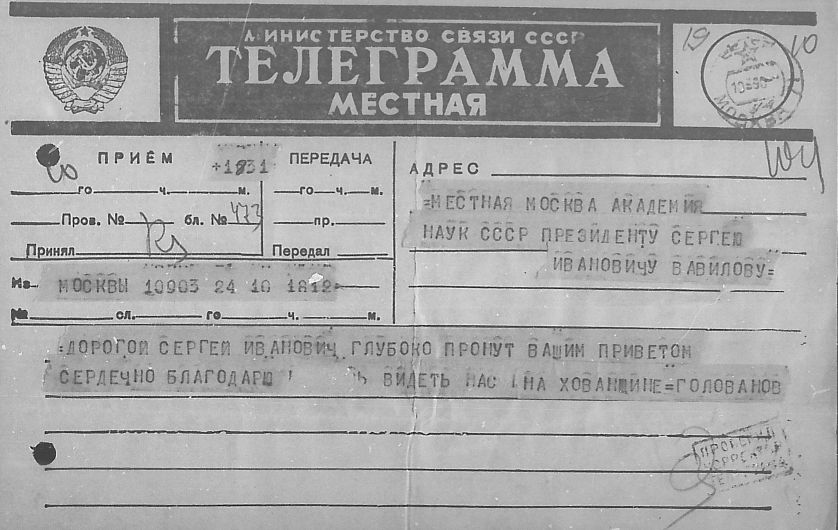 МИНИСТЕРСТВО СВЯЗИ СССР
ТЕЛЕГРАММА
МЕСТНАЯ
19
10
ПРИЁМ
ПЕРЕДАЧА
го ч. м.
го ч. м.
Пров. № бл. № 473
пр.
Принял
Передал
Из МОСКВЫ 10903 24 10 1812=
№ сл. го ч. м.
АДРЕС
=МЕСТНАЯ МОСКВА АКАДЕМИЯ
НАУК СССР ПРЕЗИДЕНТУ СЕРГЕЮ
ИВАНОВИЧУ ВАВИЛОВУ=
=ДОРОГОЙ СЕРГЕЙ ИВАНОВИЧ ГЛУБОКО ТРОНУТ ВАШИМ ПРИВЕТОМ
СЕРДЕЧНО БЛАГОДАРЮ ВИДЕТЬ ВАС НА ХОВАНЩИНЕ=ГОЛОВАНОВ